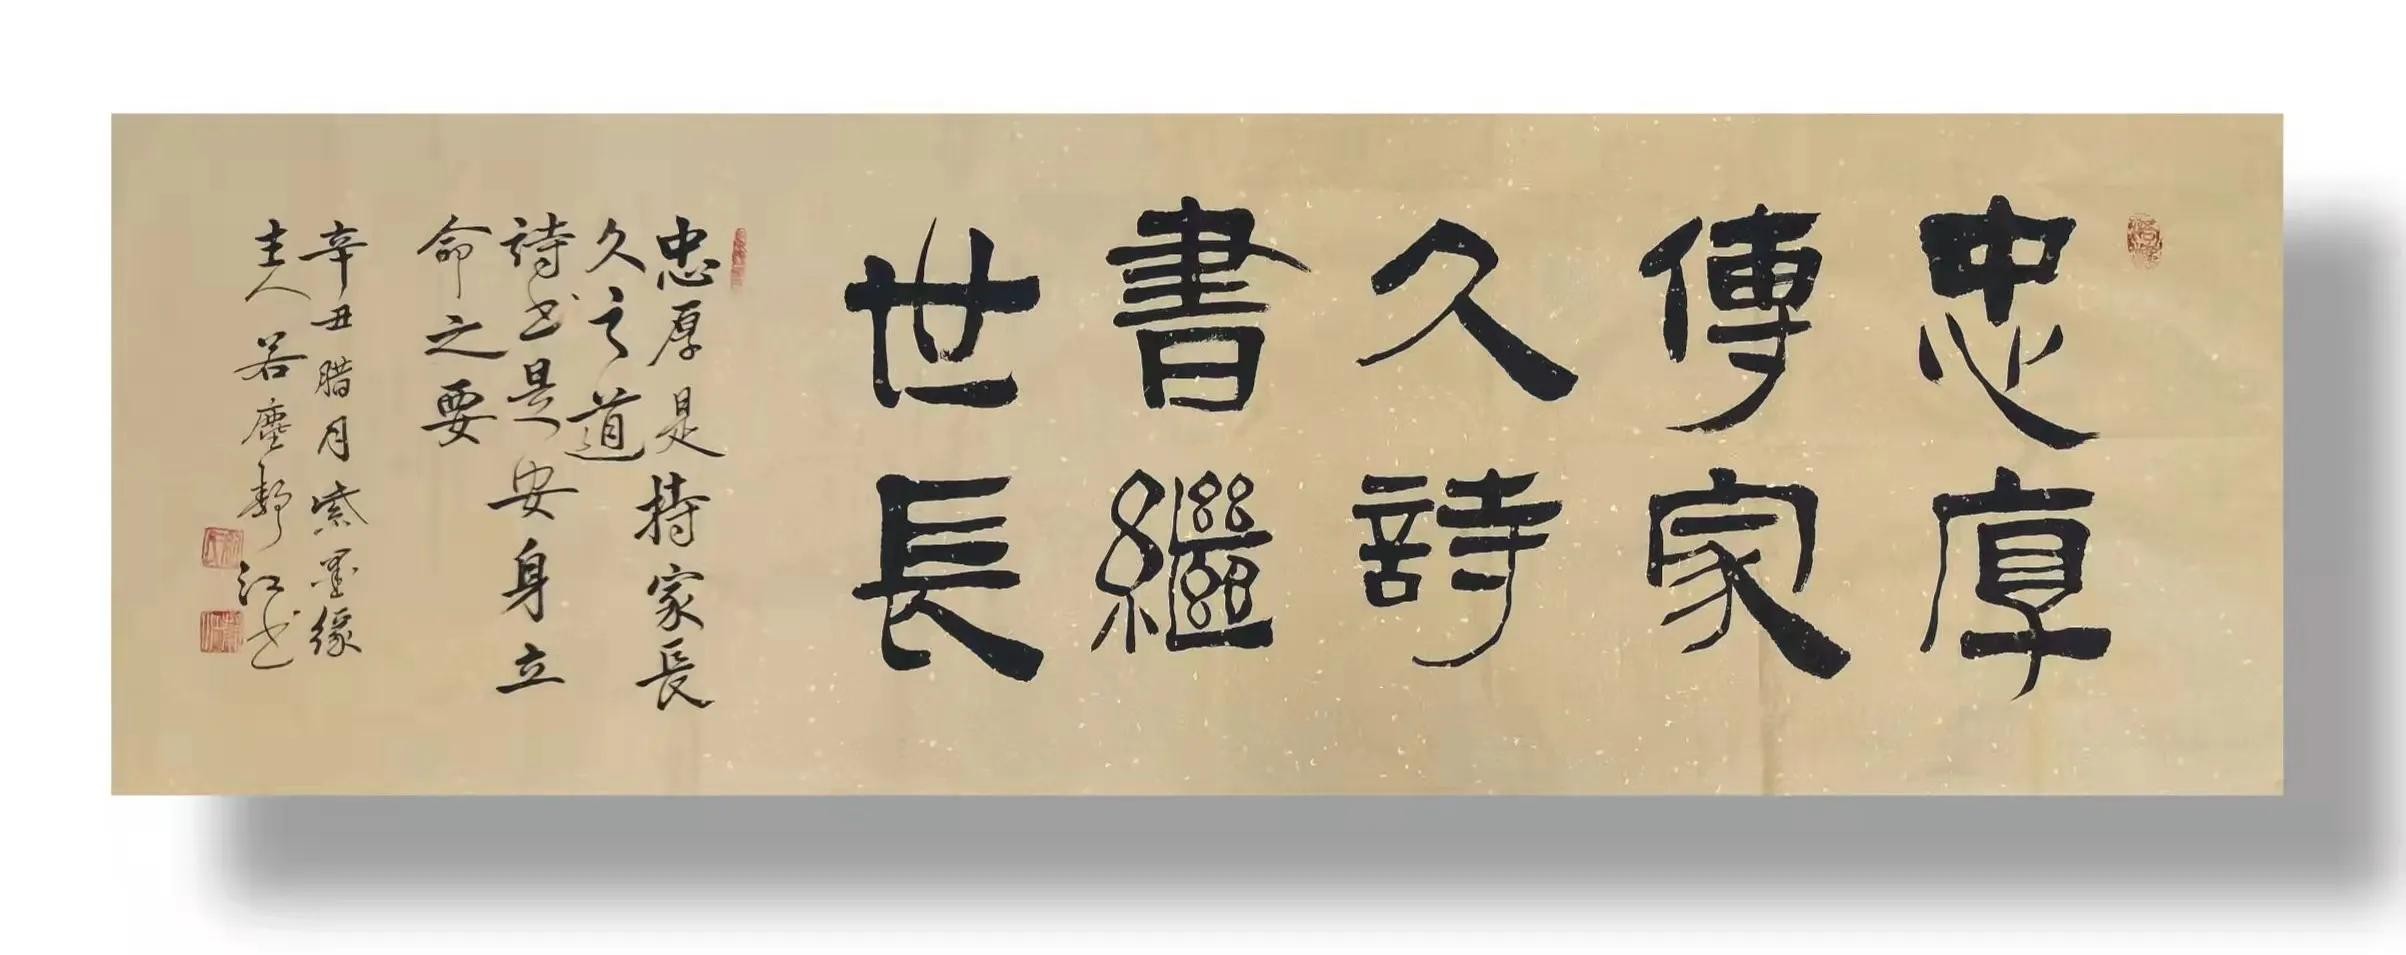 忠厚
傳家
久詩
書繼
世長
忠厚是持家長
久之道
詩书是安身立
命之要
辛丑腊月紫墨缘
主人若塵静江书